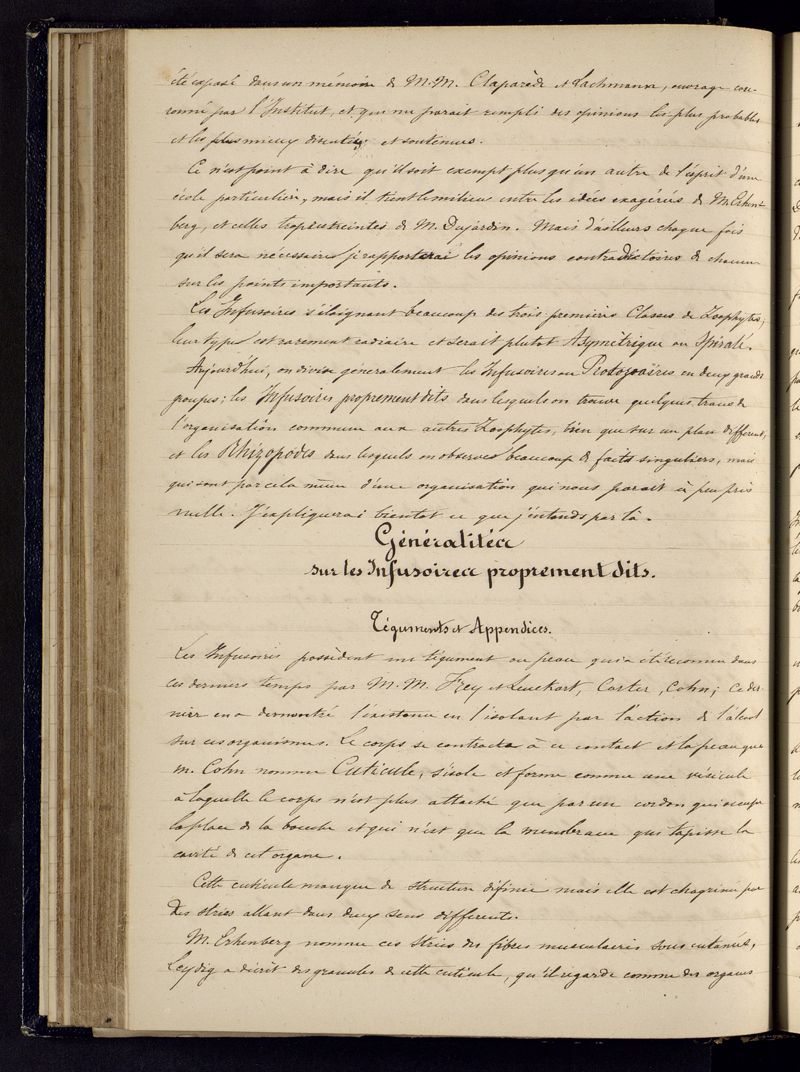 été exposé dans un mémoire de M.M. Claparède et Lachmann, ouvrage cou-
ronné par l'Institut, et qui me parait rempli des opinions les plus probables
et les plus mieux discutées et soutenues.
Ce n'est point à dire qu'il soit exempt plus qu'un autre de l'esprit d'une
école particulière, mais il tient le milieu entre les idées exagérées de M. Erhen-
berg, et celles trop restreintes de M. Dujardin. Mais d'ailleurs chaque fois
qu'il sera nécessaire je rapporterai les opinions contradictoires de chacun
sur les points importants.
Les Infusoires s'éloignant beaucoup des trois premières Classes de Zoophytes,
leur type est rarement radiaire et serait plutot Asymétrique ou Spiralé.
Aujourd'hui, on divise généralement les Infusoires ou Protozoaires en deux grands
groupes; les Infusoires proprement dits dans lesquels on trouve quelques traces de
l'organisation commune aux autres Zoophytes, bien que sur un plan différent,
et les Rhizopodes dans lesquels on observe beaucoup de faits singuliers, mais
qui sont par cela même d'une organisation qui nous parait à peu près
nulle. J'expliquerai bientot ce que j'entends par là.
Généralités
sur les Infusoires proprement dits.
Téguments et Appendices.
Les Infusoires possèdent un tégument ou peau qui a été reconnu dans
ces derniers temps par M.M. Frey et Leuckart, Carter, Cohn; Ce der-
nier en a demontré l'existence en l'isolant par l'action de l'alcool
sur ces organismes. Le corps se contracte à ce contact et la peau que
M. Cohn nomme Cuticule, s'isole et forme comme une vésicule
à laquelle le corps n'est plus attaché que par un cordon qui occupe
la place de la bouche et qui n'est que la membrane qui tapisse la
cavité de cet organe.
Cette cuticule manque de structure définie mais elle est chagrinée par
des stries allant dans deux sens différents.
M. Erhenberg nomme ces stries des fibres musculaires sous cutanées,
Leydig a décrit des granules de cette cuticule, qu'il regarde comme des organes